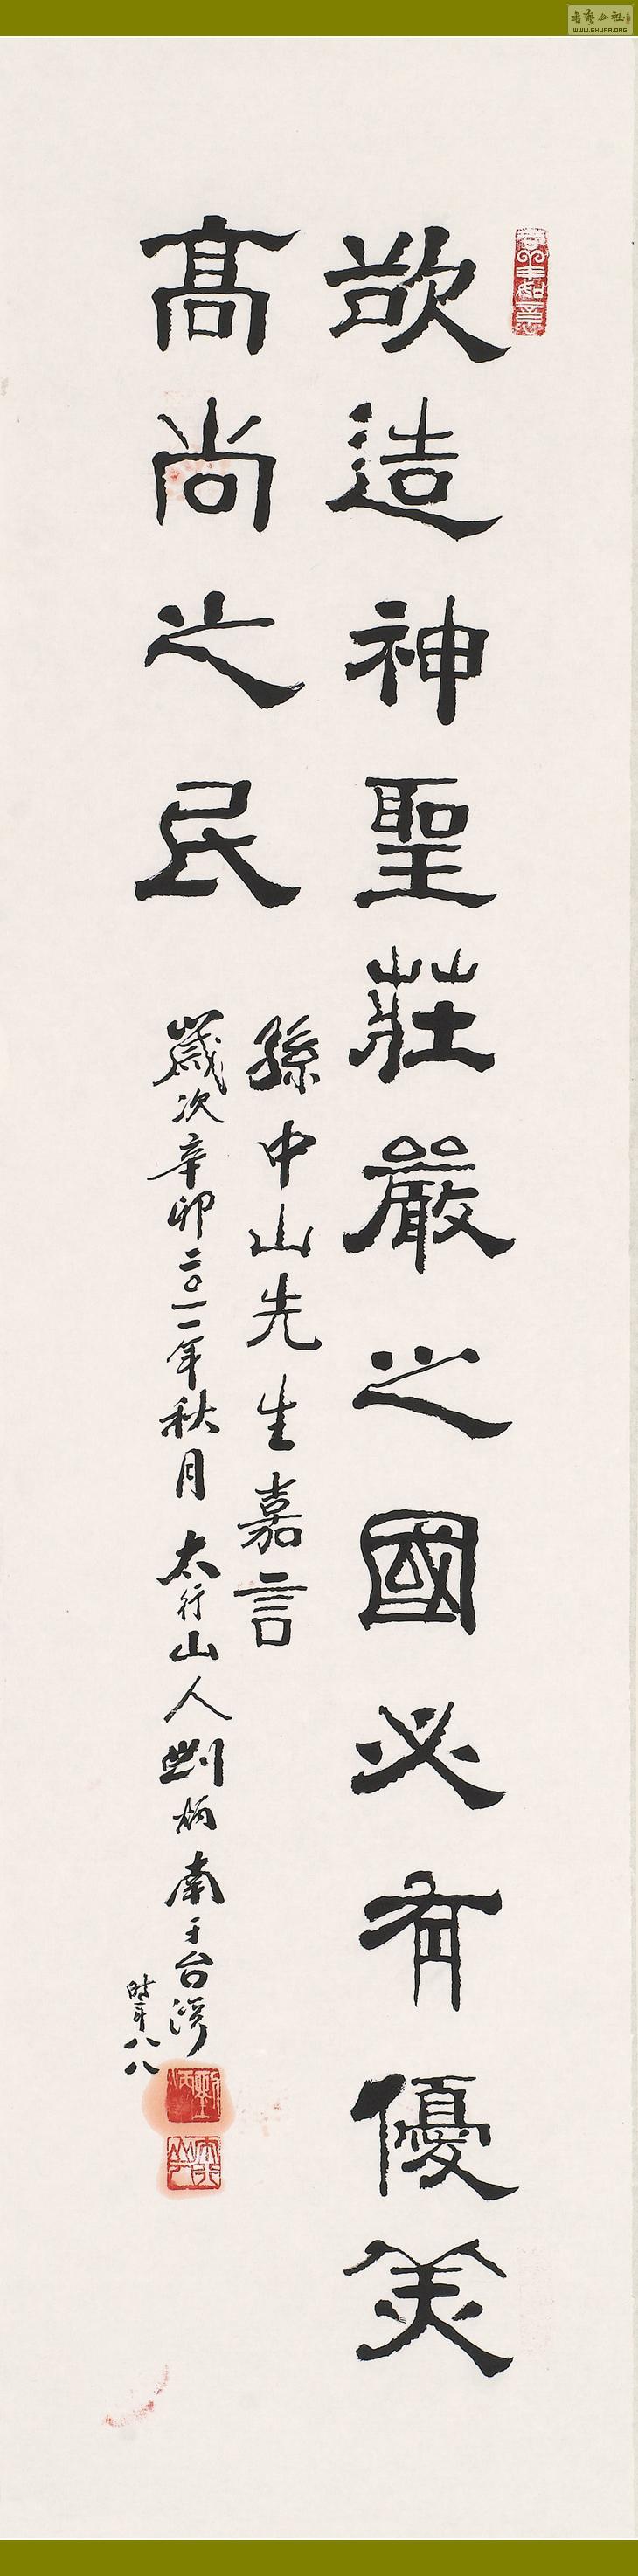 欲造神聖莊嚴之國必有優美
高尚之民
孫中山先生嘉言
歲次辛卯二〇一一年秋月 太行山人劉炳南于台灣
時年八八
WWW.SHUFA.ORG